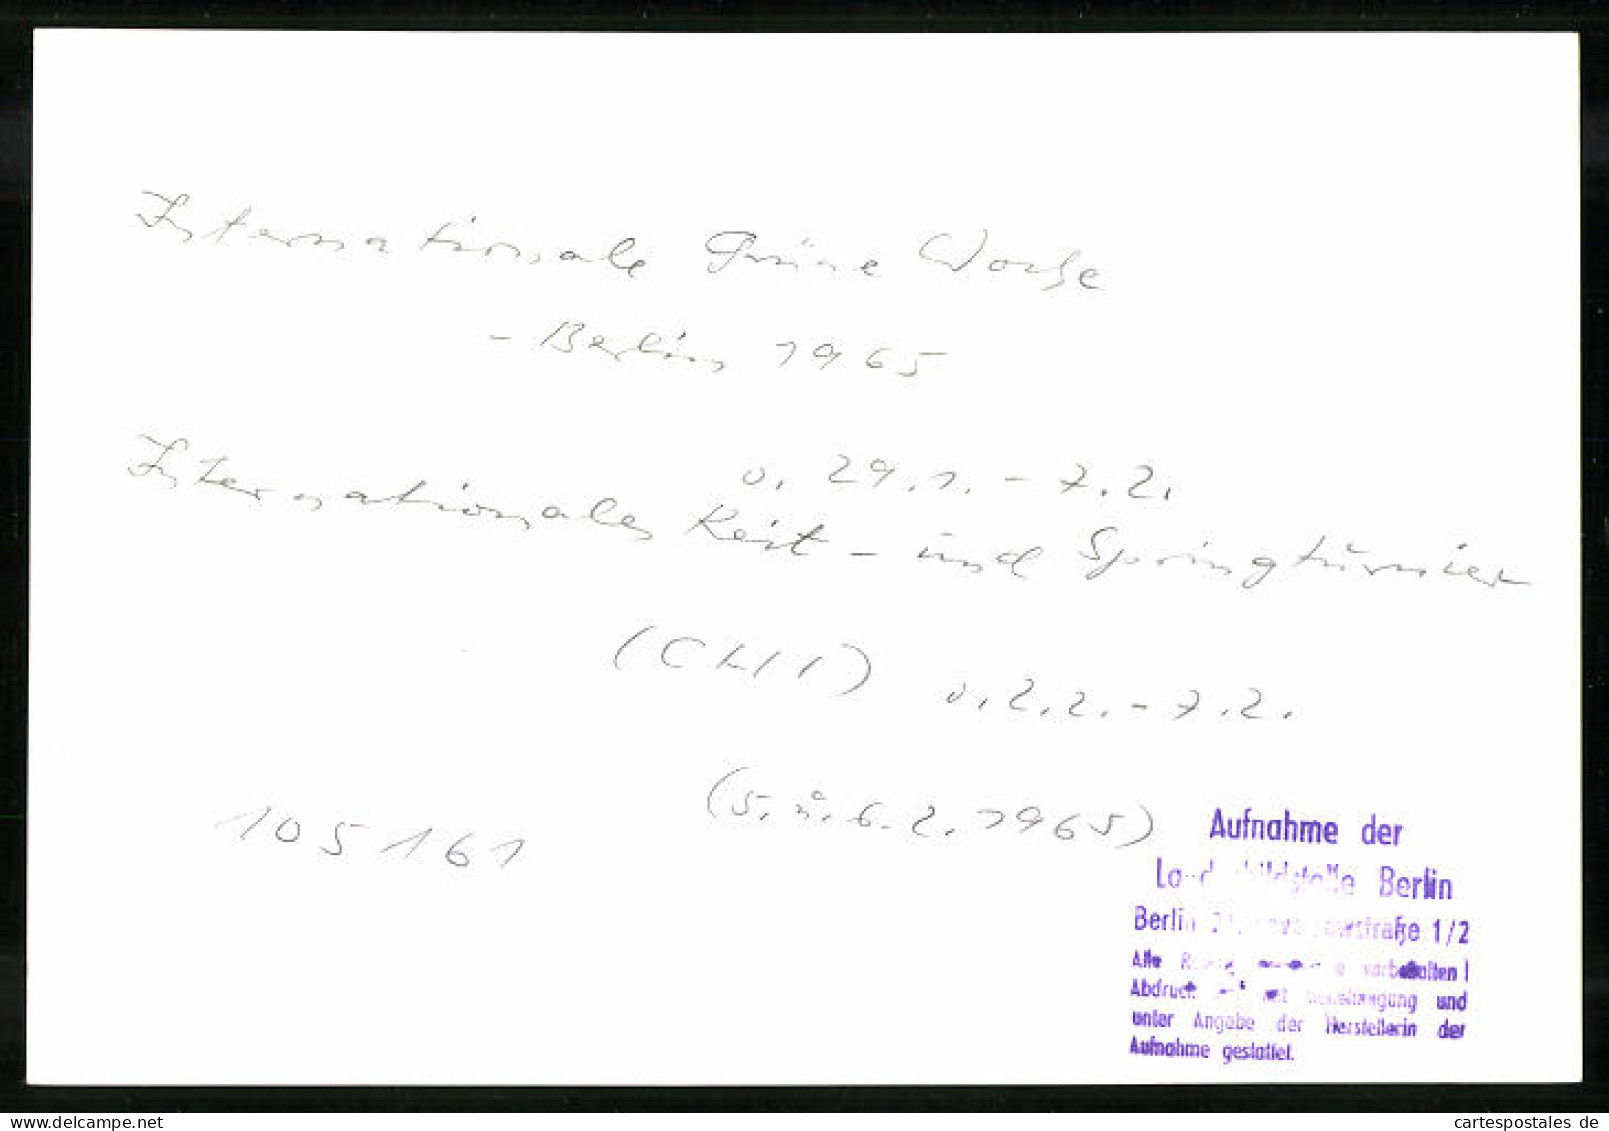 Internationale Grüne Woche
- Berlin 1965
v. 29.1. - 7.2.
Internationales Reit - und Springturnier
(CHI) v. 2.2. - 7.2.
(5. u. 6.2.1965)
105161
Aufnahme der
Landesbildstelle Berlin
Berlin 1/2
Alle vorbehalten!
Abdruck und
unter Angabe der Herstellerin der
Aufnahme gestattet.
cartespostales de
www.cartespostales.com